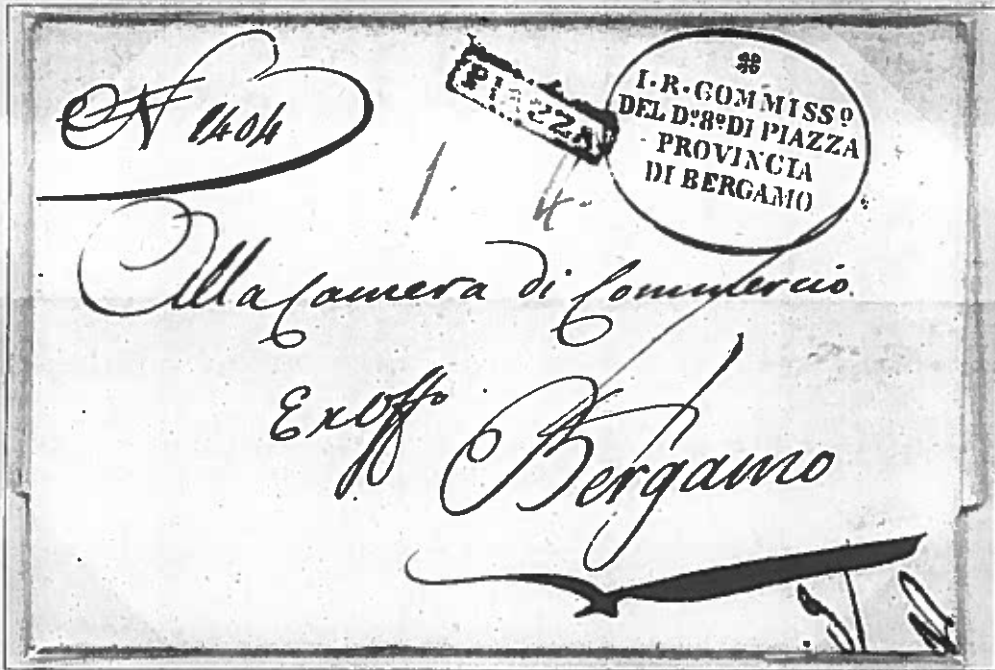 N 1404
PIAZZA
I·R·COMMISS⁰
DEL D⁰8⁰DI PIAZZA
PROVINCIA
DI BERGAMO
1. 4.
Alla Camera di Commercio
ExOffo
Bergamo